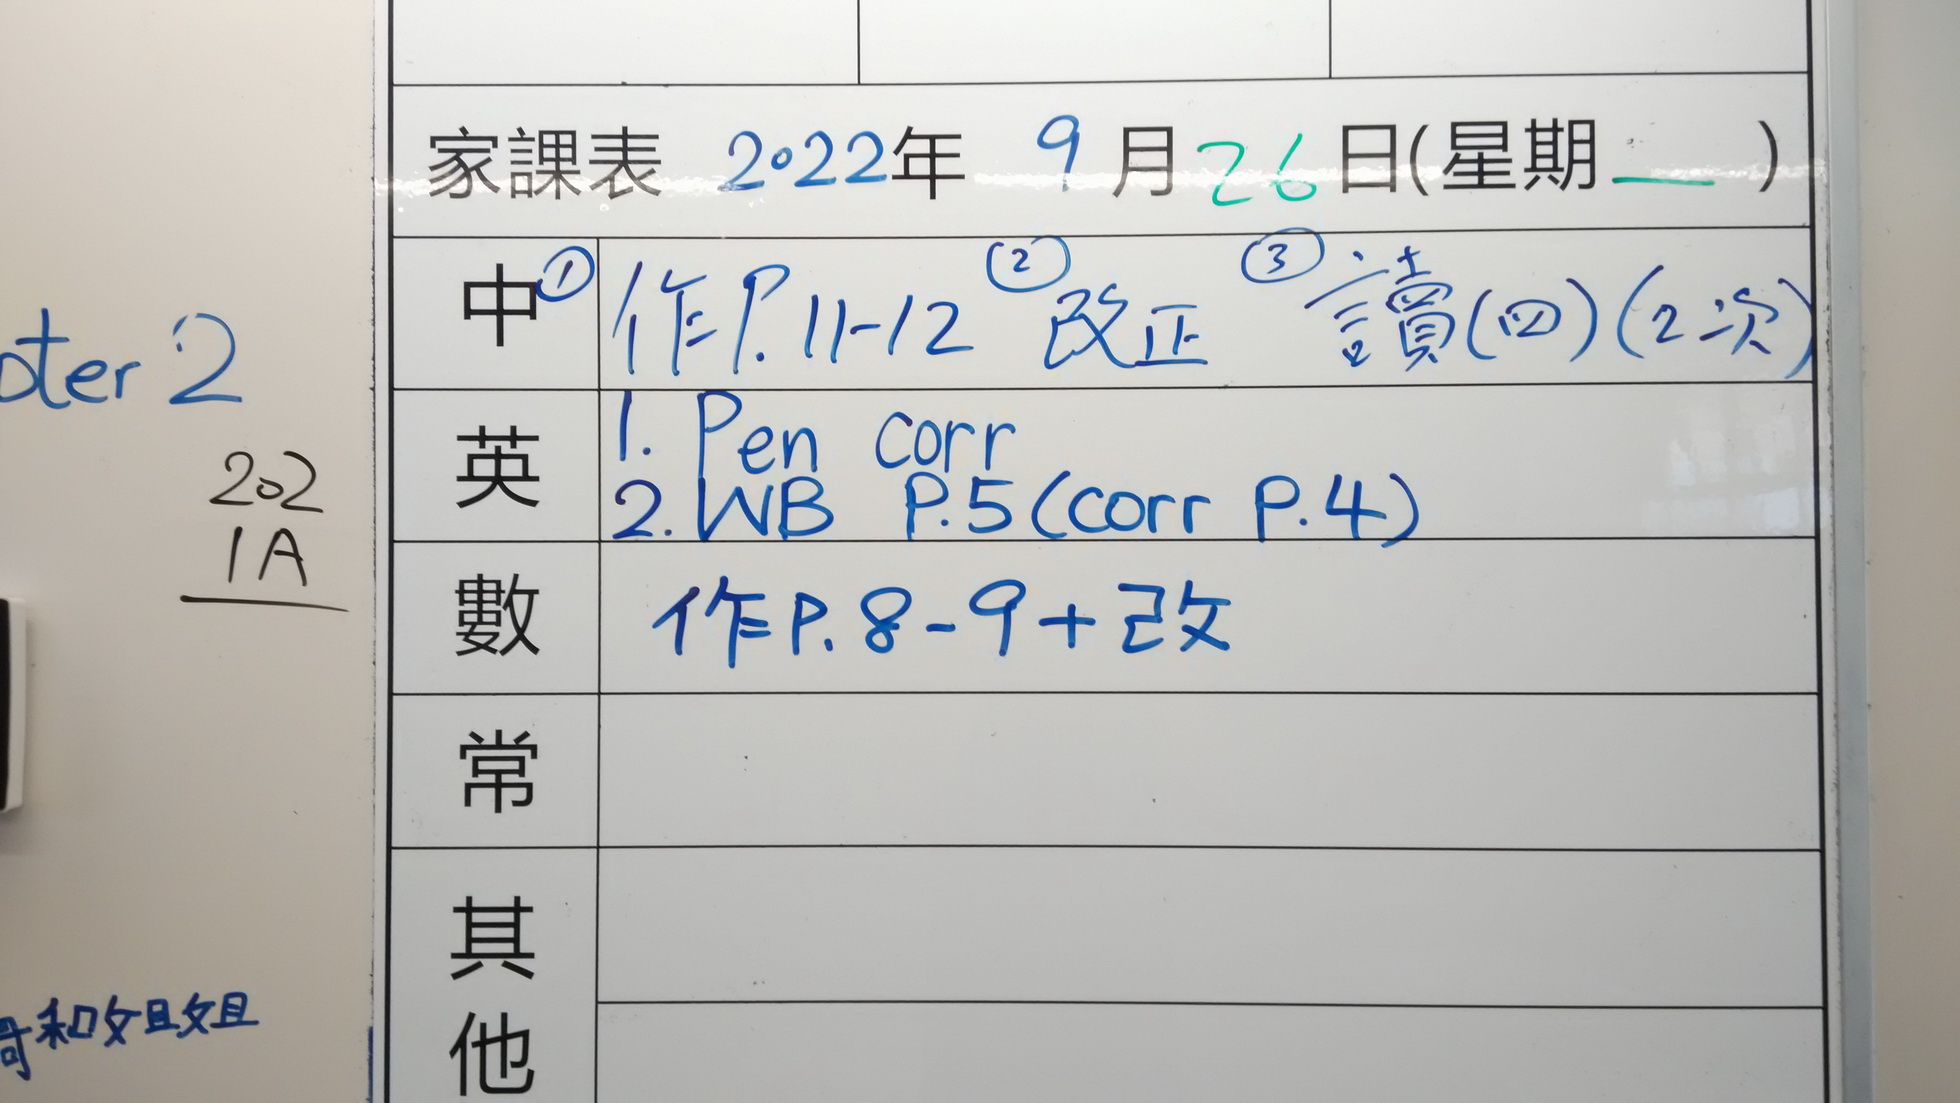 家課表 2022年 9月26日(星期一)
中 ① 作P.11-12 ② 改正 ③ 讀(四)(2次)
英 1. Pen corr
2. WB P.5(corr P.4)
數 作P.8-9+改
常
其他
oter 2
202
1A
哥和姐姐